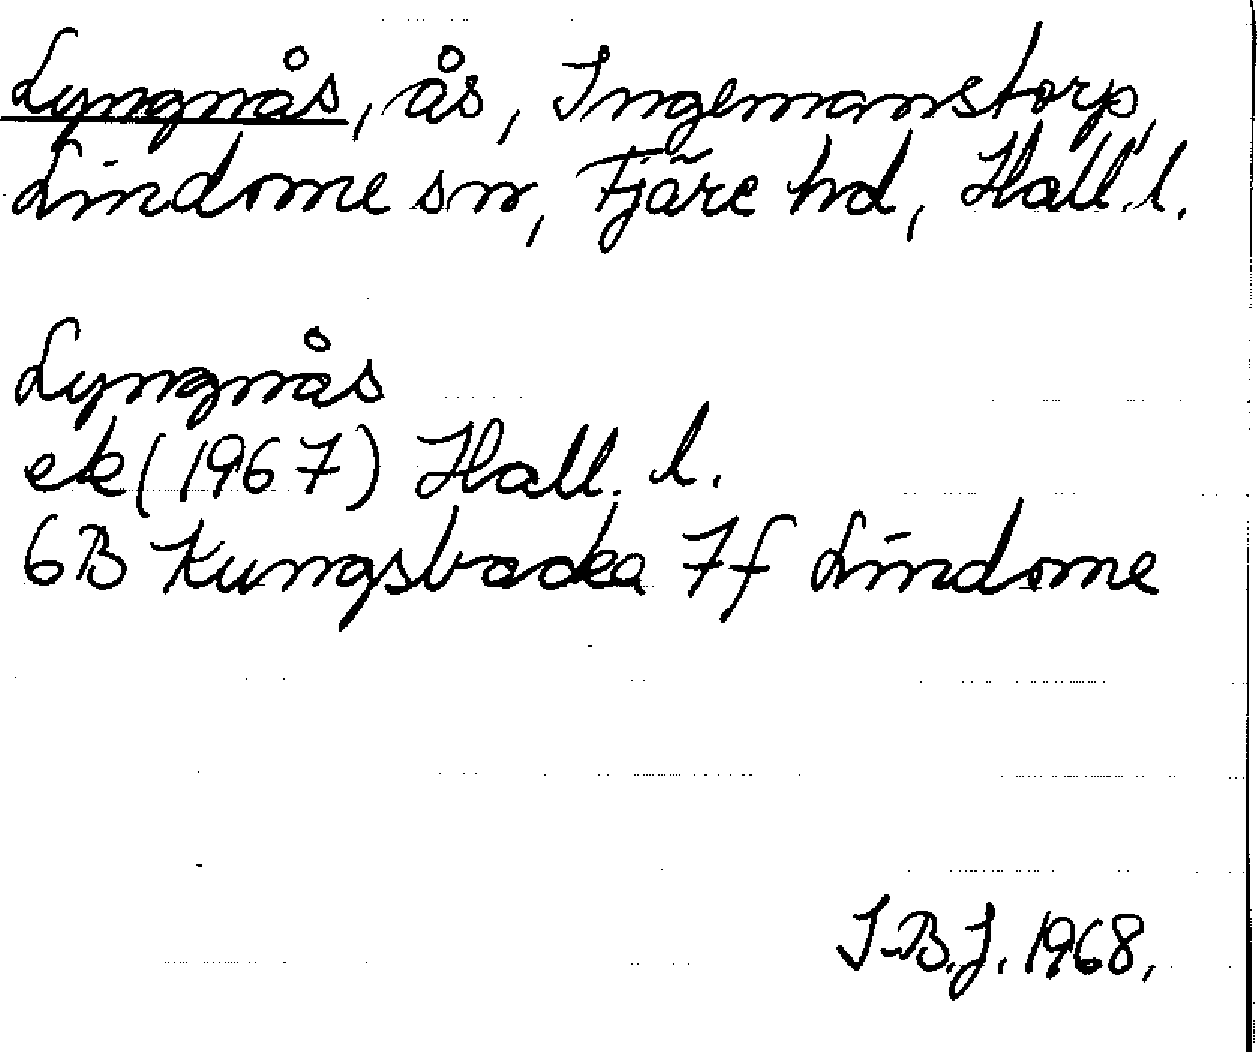 Lyngnås, ås, Ingemanstorp,
Lindome sn, Fjäre hd, Hall. l.
Lyngnås
ek (1967) Hall. l.
6B Kungsbacka 7f Lindome
I-B.J. 1968.